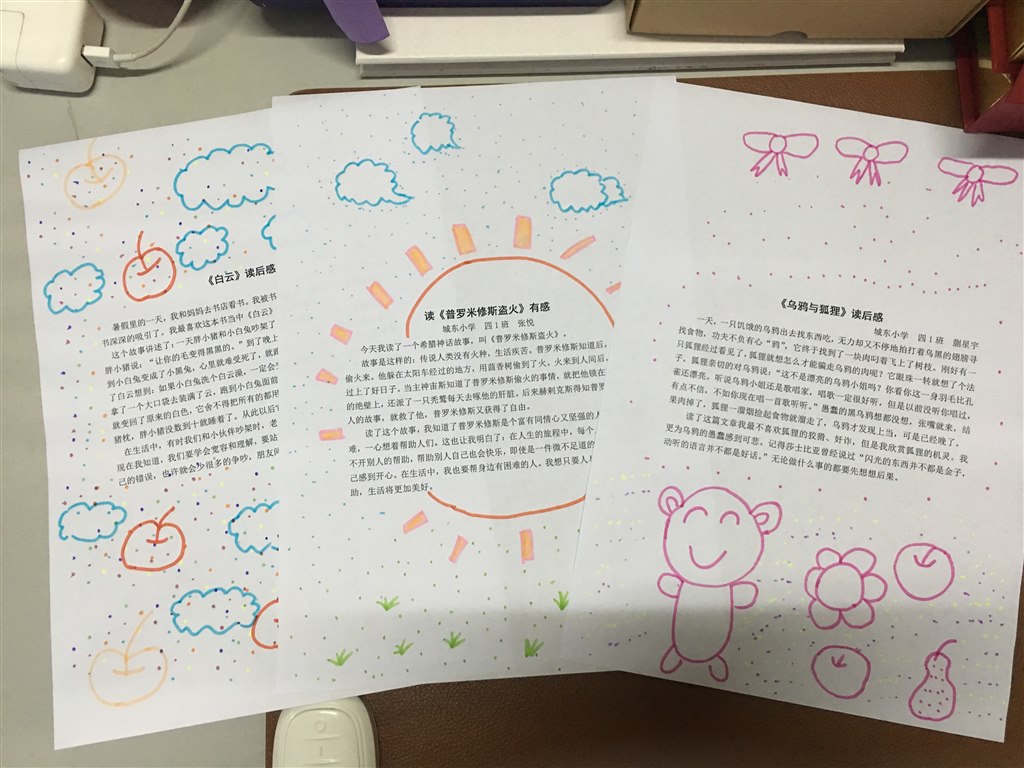 《白云》读后感
暑假里的一天，我和妈妈去书店看书。我被书
书深深的吸引了。我最喜欢这本书当中《白云》
这个故事讲述了：一天胖小猪和小白兔吵架了
胖小猪说：“让你的毛变得黑黑的。”到了晚上
到小白兔变成了小黑兔，心里就难受死了，就跑
了白云想到：如果小白兔洗个白云澡，一定会变
拿了一个大口袋去装满了云，跑到小白兔面前
就变回了原来的白色，它舍不得把所有的都用
猪枕，胖小猪没数到十就睡着了。从此以后
在生活中，有时我们和小伙伴吵架时，老
现在我知道，我们要学会宽容和理解，要站
己的错误，也许就会少很多的争吵，朋友间
读《普罗米修斯盗火》有感
城东小学 四1班 张悦
今天我读了一个希腊神话故事，叫《普罗米修斯盗火》。
故事是这样的：传说人类没有火种，生活疾苦，普罗米修斯知道后，
偷火来。他躲在太阳车经过的地方，用茴香树偷到了火。火来到人间后，
过上了好日子。当主神宙斯知道了普罗米修斯偷火的事情，就把他锁在
的绝壁上，还派了一只秃鹫每天去啄他的肝脏。后来赫剌克斯得知普罗
人的故事，就救了他，普罗米修斯又获得了自由。
读了这个故事，我知道了普罗米修斯是个富有同情心又坚强的人
难，一心想着帮助人们。这也让我明白了：在人生的旅程中，每个
不开别人的帮助，帮助别人自己也会快乐，即使是一件微不足道的
己感到开心。在生活中，我也要帮身边有困难的人。我想只要人
助，生活将更加美好。
《乌鸦与狐狸》读后感
城东小学 四1班 蒯星宇
一天，一只饥饿的乌鸦出去找东西吃，无力却又不停地拍打着乌黑的翅膀寻
找食物。功夫不负有心“鸦”。它终于找到了一块肉叼着飞上了树枝。刚好有一
只狐狸经过看见了，狐狸就想怎么才能骗走乌鸦的肉呢？它眼珠一转就想了个法
子，狐狸亲切的对乌鸦说：“这不是漂亮的乌鸦小姐吗？你看你这一身羽毛比孔
雀还漂亮。听说乌鸦小姐还是歌唱家，唱歌一定很好听，但是以前没听你唱过，
有点不信，不如你现在唱一首歌听听。”愚蠢的黑乌鸦想都没想，张嘴就来，结
果肉掉了，狐狸一溜烟捡起食物就溜走了，乌鸦才发现上当，可是已经晚了。
读了这篇文章我最不喜欢狐狸的狡猾、奸诈，但是我欣赏狐狸的机灵。我
更为乌鸦的愚蠢感到可悲。记得莎士比亚曾经说过“闪光的东西并不都是金子，
动听的语言并不都是好话。”无论做什么事的都要先想想后果。